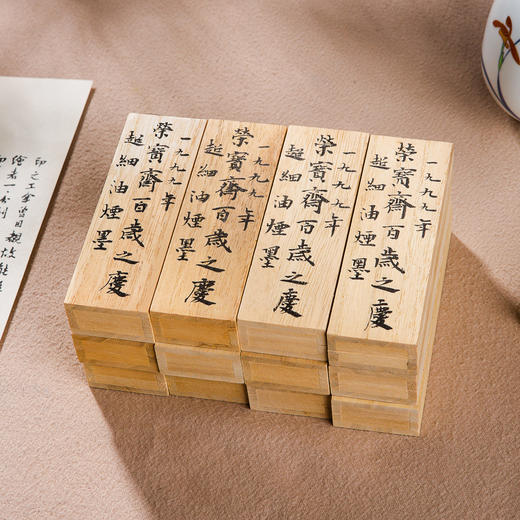 一九九九年
榮寳齋百歲之慶
超細油煙墨
一九九九年
榮寳齋百歲之慶
超細油煙墨
一九九九年
榮寳齋百歲之慶
超細油煙墨
一九九九年
榮寳齋百歲之慶
超細油煙墨